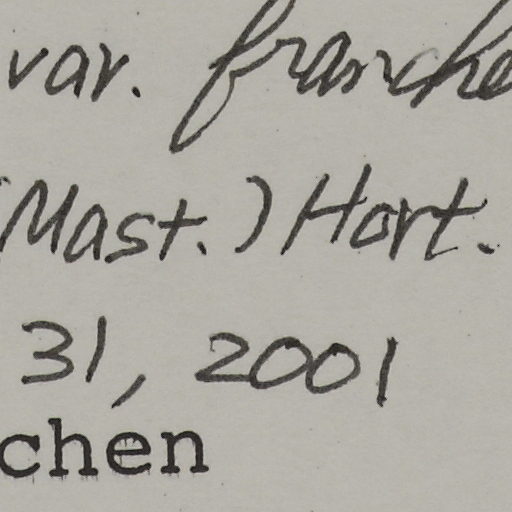 var. franche
(Mast.) Hort.
31, 2001
chen